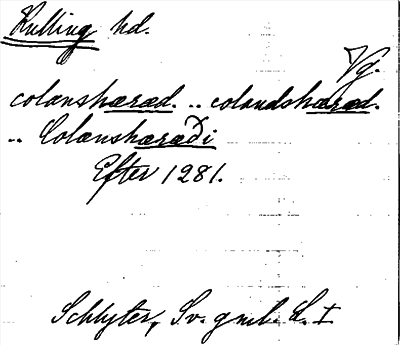 Kulling hd.
Vg.
colænshæræd. .. colandshæræd.
.. Colænshæræði
Efter 1281.
Schlyter, Sv. gml. L. I